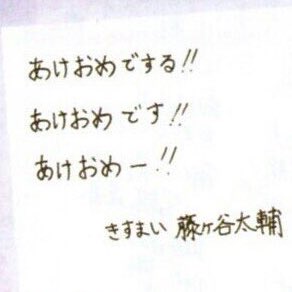 あけおめでする!!
あけおめです!!
あけおめー!!
きすまい 藤ヶ谷太輔